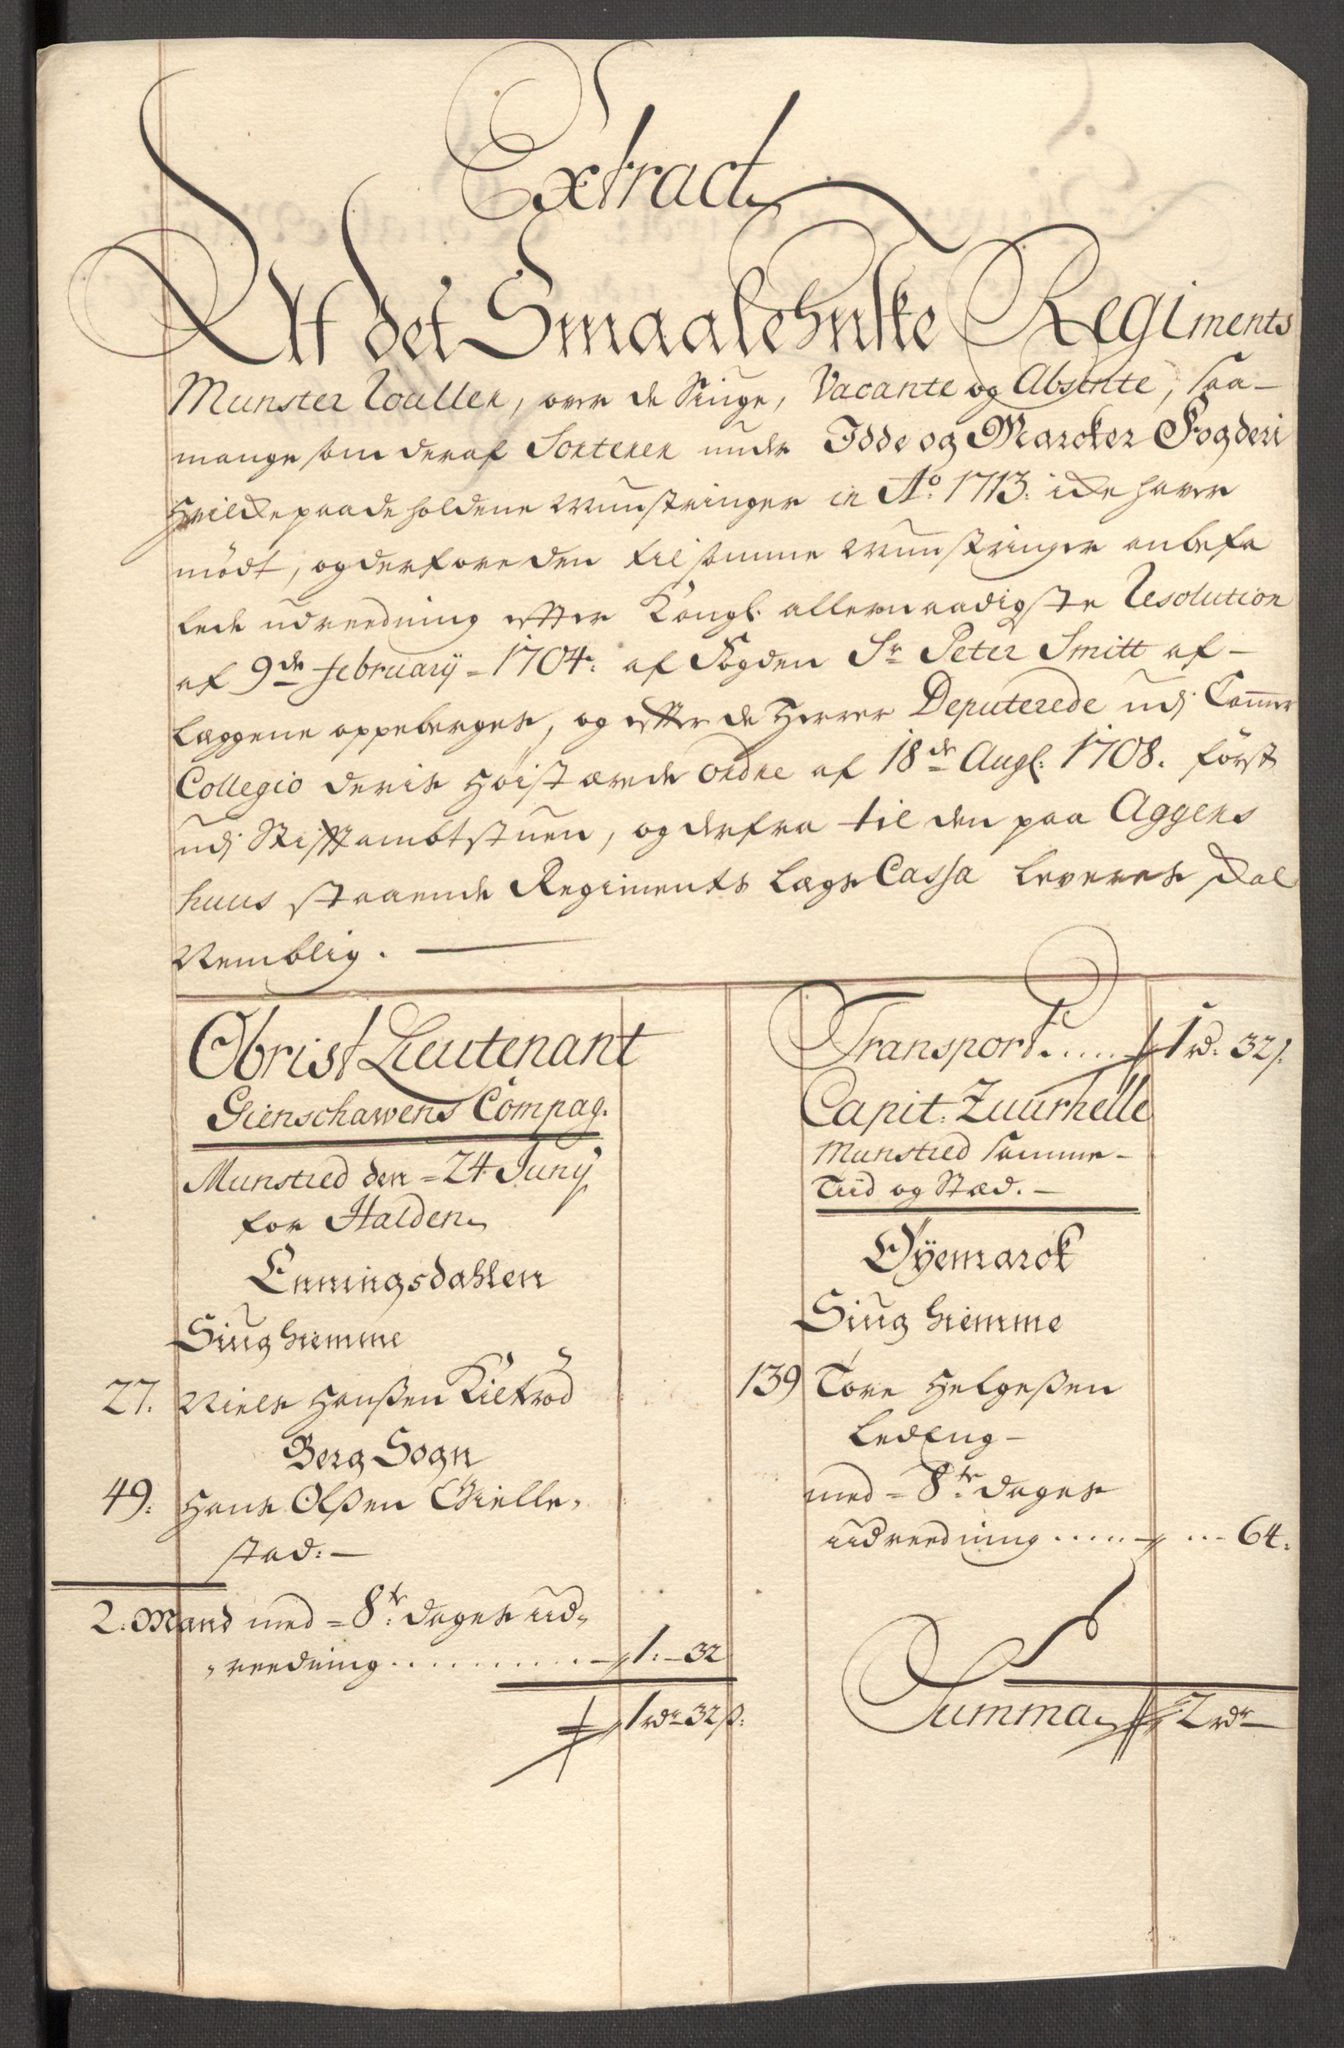 Extract
Af det Smaalehnske Regiments
Munster Roullen, over de Siuge, Vacante og Absente, saa-
mange som deraf Sorterer under Idde og Marcker Fogderi
Hvilcke paa de holdene Munstringer in Aō. 1713. icke haver
mödt, og derfore den til samme Munstringer anbefa
lede udreedning efter Kongl. allernaadigste Resolution
af 9de february - 1704. af Fogden Sr. Peter Smitt af-
læggene oppeberges, og efter de Herrer Deputerede udj Cammer
Collegio deris Høistærede ordre af 18de Augl. 1708. först
udj Stifftambtstuen, og derfra til den paa Aggers
huus staaende Regiments Lægs Cassa leveres skal
Nemblig.
Obrist Lieutenant
Gienschawens Compag.
Munstred den - 24 Junij
for Halden
Enningsdahlen
Siug hiemme
27. Niels Hanßen Kiltrod
Berg Sogn
49. Hans Olßen Gielle-
stad. -
2. Mand med - 8te. dages ud-
reedning .......... 1. - 32
1 rdr 32 ß.
Transport ..... 1 rd. 32 ß.
Capit. Zuurhelle
Munstred samme-
Tiid og Stæd. -
Øyemarck
Siug hiemme
139 Tore Helgeßen
LedEng -
med - 8te. dages
udreedning ..... ... 64.
Summa 2 rdr